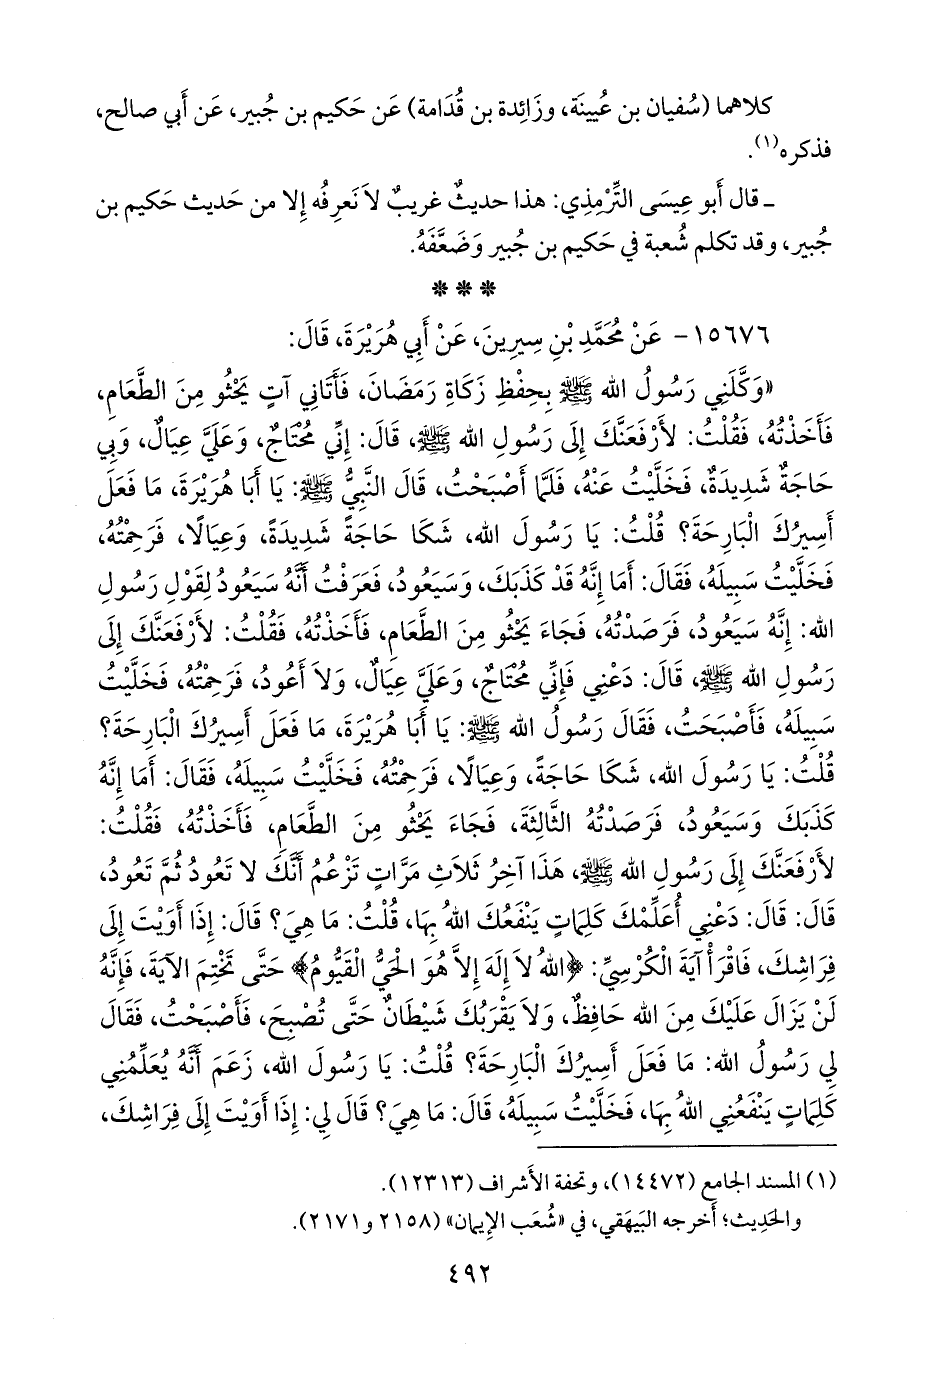 كلاهما (سُفيان بن عُيينَة، وزَائِدة بن قُدَامة) عَن حَكيم بن جُبير، عَن أَبي صالح،
فذكره(١).
ـ قال أَبو عِيسَى التِّرْمِذِي: هذا حديثٌ غريبٌ لاَ نَعرِفُه إلا من حَديث حَكيم بن
جُبير، وقد تكلم شُعبة في حَكيم بن جُبير وَضَعَّفَهُ.
* * *
١٥٦٧٦- عَنْ مُحَمَّدِ بْنِ سِيرِينَ، عَنْ أَبِي هُرَيْرَةَ، قَالَ:
«وَكَّلَنِي رَسُولُ الله ﷺ بِحِفْظِ زَكَاةِ رَمَضَانَ، فَأَتَانِي آتٍ يَحْثُو مِنَ الطَّعَامِ،
فَأَخَذْتُهُ، فَقُلْتُ: لأَرْفَعَنَّكَ إِلَى رَسُولِ الله ﷺ، قَالَ: إِنِّي مُحْتَاجٌ، وَعَلَيَّ عِيَالٌ، وَبِي
حَاجَةٌ شَدِيدَةٌ، فَخَلَّيْتُ عَنْهُ، فَلَمَّا أَصْبَحْتُ، قَالَ النَّبِيُّ ﷺ: يَا أَبَا هُرَيْرَةَ، مَا فَعَلَ
أَسِيرُكَ الْبَارِحَةَ؟ قُلْتُ: يَا رَسُولَ الله، شَكَا حَاجَةً شَدِيدَةً، وَعِيَالًا، فَرَحِمْتُهُ،
فَخَلَّيْتُ سَبِيلَهُ، فَقَالَ: أَمَا إِنَّهُ قَدْ كَذَبَكَ، وَسَيَعُودُ، فَعَرَفْتُ أَنَّهُ سَيَعُودُ لِقَوْلِ رَسُولِ
الله: إِنَّهُ سَيَعُودُ، فَرَصَدْتُهُ، فَجَاءَ يَحْثُو مِنَ الطَّعَامِ، فَأَخَذْتُهُ، فَقُلْتُ: لأَرْفَعَنَّكَ إِلَى
رَسُولِ الله ﷺ، قَالَ: دَعْنِي فَإِنِّي مُحْتَاجٌ، وَعَلَيَّ عِيَالٌ، وَلاَ أَعُودُ، فَرَحِمْتُهُ، فَخَلَّيْتُ
سَبِيلَهُ، فَأَصْبَحَتُ، فَقَالَ رَسُولُ الله ﷺ: يَا أَبَا هُرَيْرَةَ، مَا فَعَلَ أَسِيرُكَ الْبَارِحَةَ؟
قُلْتُ: يَا رَسُولَ الله، شَكَا حَاجَةً، وَعِيَالًا، فَرَحِمْتُهُ، فَخَلَّيْتُ سَبِيلَهُ، فَقَالَ: أَمَا إِنَّهُ
كَذَبَكَ وَسَيَعُودُ، فَرَصَدْتُهُ الثَّالِثَةَ، فَجَاءَ يَحْثُو مِنَ الطَّعَامِ، فَأَخَذْتُهُ، فَقُلْتُ:
لأَرْفَعَنَّكَ إِلَى رَسُولِ الله ﷺ، هَذَا آخِرُ ثَلاَثِ مَرَّاتٍ تَزْعُمُ أَنَّكَ لا تَعُودُ ثُمَّ تَعُودُ،
قَالَ: قَالَ: دَعْنِي أُعَلِّمْكَ كَلِمَاتٍ يَنْفَعُكَ اللهُ بِهَا، قُلْتُ: مَا هِيَ؟ قَالَ: إِذَا أَوَيْتَ إِلَى
فِرَاشِكَ، فَاقْرَأْ آيَةَ الْكُرْسِيِّ: ﴿اللهُ لاَ إِلَهَ إِلاَّ هُوَ الْحَيُّ الْقَيُّومُ﴾ حَتَّى تَخْتِمَ الآيَةَ، فَإِنَّهُ
لَنْ يَزَالَ عَلَيْكَ مِنَ الله حَافِظٌ، وَلاَ يَقْرَبُكَ شَيْطَانٌ حَتَّى تُصْبِحَ، فَأَصْبَحْتُ، فَقَالَ
لِي رَسُولُ الله: مَا فَعَلَ أَسِيرُكَ الْبَارِحَةَ؟ قُلْتُ: يَا رَسُولَ الله، زَعَمَ أَنَّهُ يُعَلِّمُنِي
كَلِمَاتٍ يَنْفَعُنِي اللهُ بِهَا، فَخَلَّيْتُ سَبِيلَهُ، قَالَ: مَا هِيَ؟ قَالَ لِي: إِذَا أَوَيْتَ إِلَى فِرَاشِكَ،
(١) المسند الجامع (١٤٤٧٢)، وتحفة الأشراف (١٢٣١٣).
والحَدِيث؛ أَخرجه البَيهَقي، في «شُعَب الإِيمان» (٢١٥٨ و٢١٧١).
٤٩٢